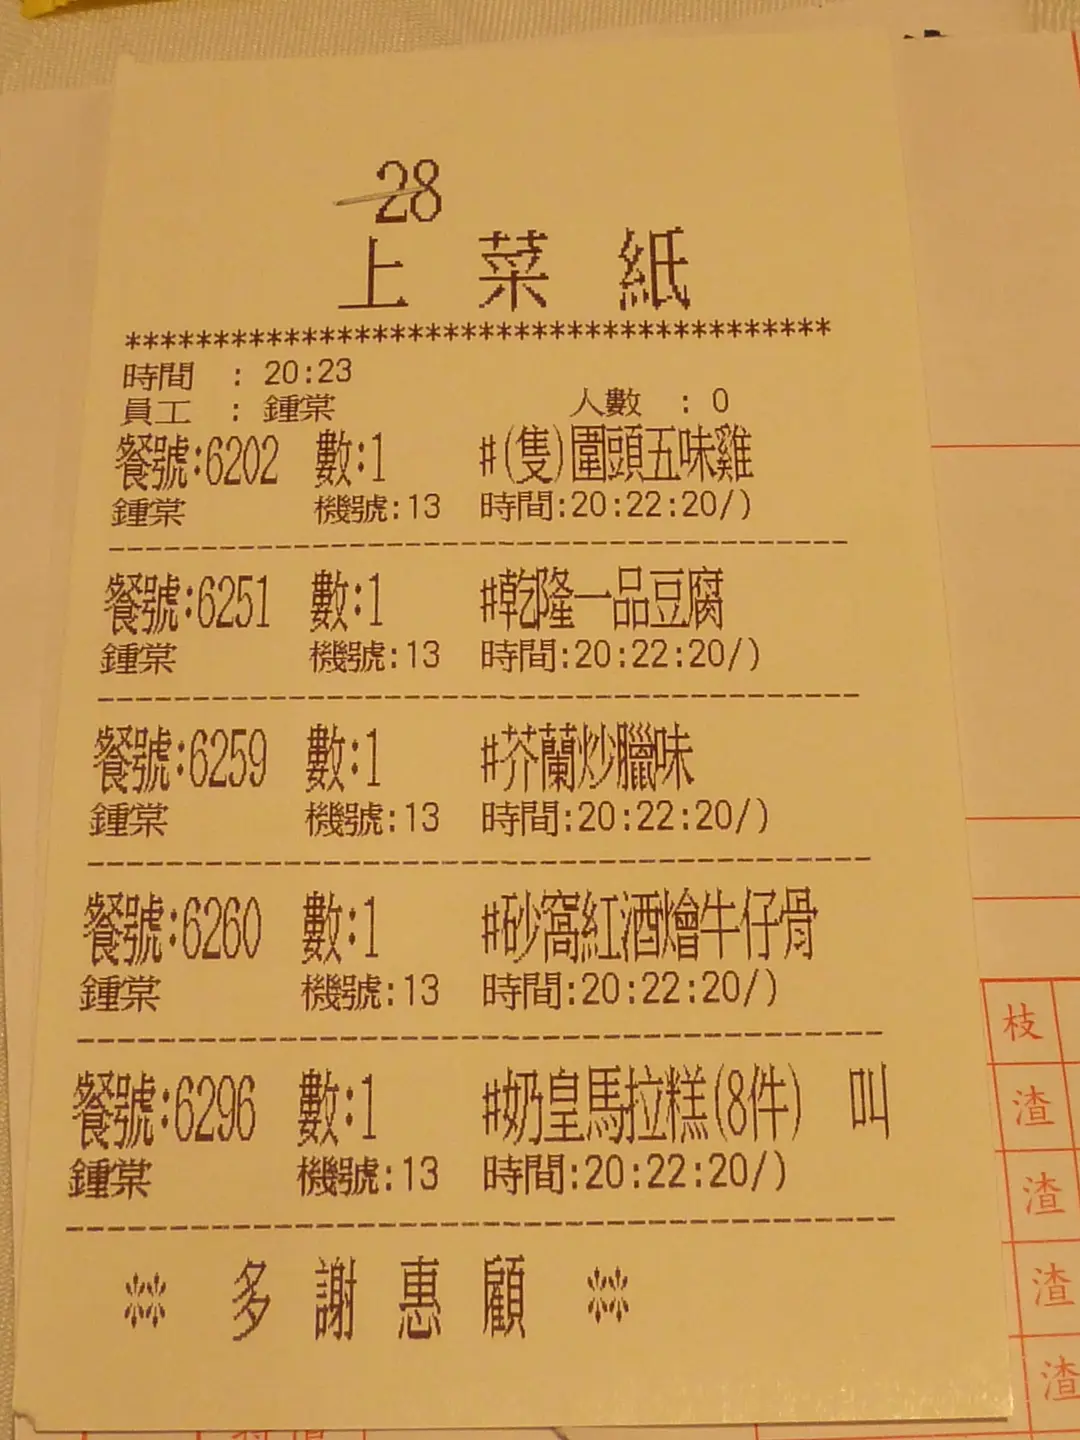 28
上菜紙
****************************************
時間 : 20:23
員工 : 鍾棠 人數 : 0
餐號:6202 數:1 #(隻)圍頭五味雞
鍾棠 機號:13 時間:20:22:20/)
餐號:6251 數:1 #乾隆一品豆腐
鍾棠 機號:13 時間:20:22:20/)
餐號:6259 數:1 #芥蘭炒臘味
鍾棠 機號:13 時間:20:22:20/)
餐號:6260 數:1 #砂窩紅酒燴牛仔骨
鍾棠 機號:13 時間:20:22:20/)
餐號:6296 數:1 #奶皇馬拉糕(8件) 叫
鍾棠 機號:13 時間:20:22:20/)
** 多謝惠顧 **
枝
渣
渣
渣
渣